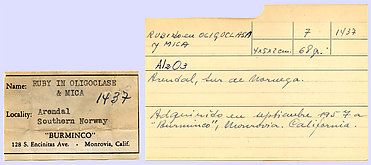 Name: RUBY IN OLIGOCLASE
& MICA
1437
Locality: Arendal
Southern Norway
"BURMINCO"
128 S. Encinitas Ave. - Monrovia, Calif.
RUBI en OLIGOCLASA 7 1437
y MICA 4x5x2cm. 68g.
Al2O3
Arendal, Sur de Noruega.
Adquirido en septiembre 1957 a
"Burminco", Monrovia. California.